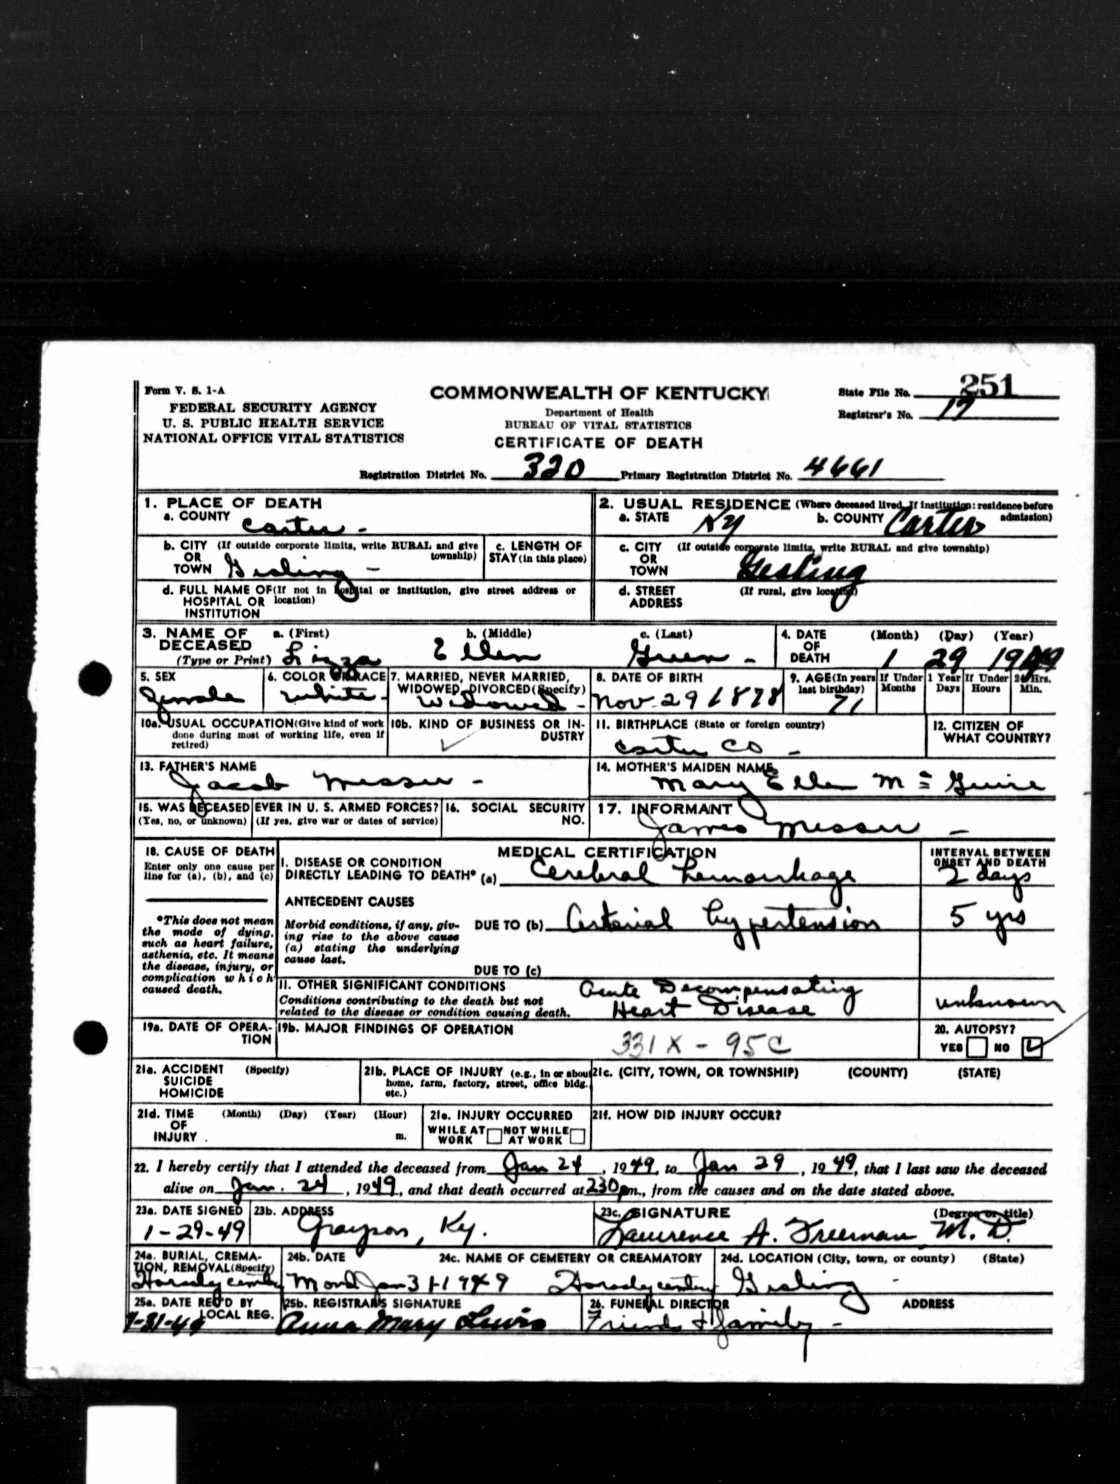 Form V. S. 1-A
FEDERAL SECURITY AGENCY
U. S. PUBLIC HEALTH SERVICE
NATIONAL OFFICE VITAL STATISTICS
COMMONWEALTH OF KENTUCKY
Department of Health
BUREAU OF VITAL STATISTICS
CERTIFICATE OF DEATH
State File No. 251
Registrar's No. 17
Registration District No. 320 Primary Registration District No. 4661
1. PLACE OF DEATH
a. COUNTY Carter -
b. CITY OR TOWN (If outside corporate limits, write RURAL and give township) Gesling -
c. LENGTH OF STAY (in this place)
d. FULL NAME OF HOSPITAL OR INSTITUTION (If not in hospital or institution, give street address or location)
2. USUAL RESIDENCE (Where deceased lived. If institution: residence before admission)
a. STATE Ky b. COUNTY Carter
c. CITY OR TOWN (If outside corporate limits, write RURAL and give township) Gesling
d. STREET ADDRESS (If rural, give location)
3. NAME OF DECEASED (Type or Print) a. (First) Lizza b. (Middle) Ellen c. (Last) Green -
4. DATE OF DEATH (Month) (Day) (Year) 1 29 1949
5. SEX female
6. COLOR OR RACE white
7. MARRIED, NEVER MARRIED, WIDOWED, DIVORCED (Specify) Widowed -
8. DATE OF BIRTH Nov. 29 1878
9. AGE (In years last birthday) 71 If Under 1 Year Months Days If Under 24 Hrs. Hours Min.
10a. USUAL OCCUPATION (Give kind of work done during most of working life, even if retired)
10b. KIND OF BUSINESS OR INDUSTRY
11. BIRTHPLACE (State or foreign country) Carter Co -
12. CITIZEN OF WHAT COUNTRY?
13. FATHER'S NAME Jacob Messer -
14. MOTHER'S MAIDEN NAME Mary Ellen McGuire
15. WAS DECEASED EVER IN U. S. ARMED FORCES? (Yes, no, or unknown) (If yes, give war or dates of service)
16. SOCIAL SECURITY NO.
17. INFORMANT James Messer -
18. CAUSE OF DEATH
Enter only one cause per line for (a), (b), and (c)
*This does not mean the mode of dying, such as heart failure, asthenia, etc. It means the disease, injury, or complication which caused death.
MEDICAL CERTIFICATION
INTERVAL BETWEEN ONSET AND DEATH
I. DISEASE OR CONDITION DIRECTLY LEADING TO DEATH* (a) Cerebral hemorrhage 2 days
ANTECEDENT CAUSES
Morbid conditions, if any, giving rise to the above cause (a) stating the underlying cause last.
DUE TO (b) Arterial hypertension 5 yrs
DUE TO (c)
II. OTHER SIGNIFICANT CONDITIONS
Conditions contributing to the death but not related to the disease or condition causing death.
Acute Decompensating Heart Disease unknown
19a. DATE OF OPERATION
19b. MAJOR FINDINGS OF OPERATION
331X - 95C
20. AUTOPSY? YES NO
21a. ACCIDENT SUICIDE HOMICIDE (Specify)
21b. PLACE OF INJURY (e.g., in or about home, farm, factory, street, office bldg. etc.)
21c. (CITY, TOWN, OR TOWNSHIP) (COUNTY) (STATE)
21d. TIME OF INJURY (Month) (Day) (Year) (Hour) m.
21e. INJURY OCCURRED WHILE AT WORK NOT WHILE AT WORK
21f. HOW DID INJURY OCCUR?
22. I hereby certify that I attended the deceased from Jan 24, 1949, to Jan 29, 1949, that I last saw the deceased
alive on Jan. 24, 1949, and that death occurred at 230 pm., from the causes and on the date stated above.
23a. DATE SIGNED 1-29-49
23b. ADDRESS Grayson, Ky.
23c. SIGNATURE (Degree or title) Lawrence A. Freeman, M. D.
24a. BURIAL, CREMATION, REMOVAL (Specify)
24b. DATE Mond Jan 31 1949
24c. NAME OF CEMETERY OR CREAMATORY
24d. LOCATION (City, town, or county) (State) Gesling -
25a. DATE REC'D BY LOCAL REG. 1-31-49
25b. REGISTRAR'S SIGNATURE Anna Mary Lewis
26. FUNERAL DIRECTOR ADDRESS Friends & family -